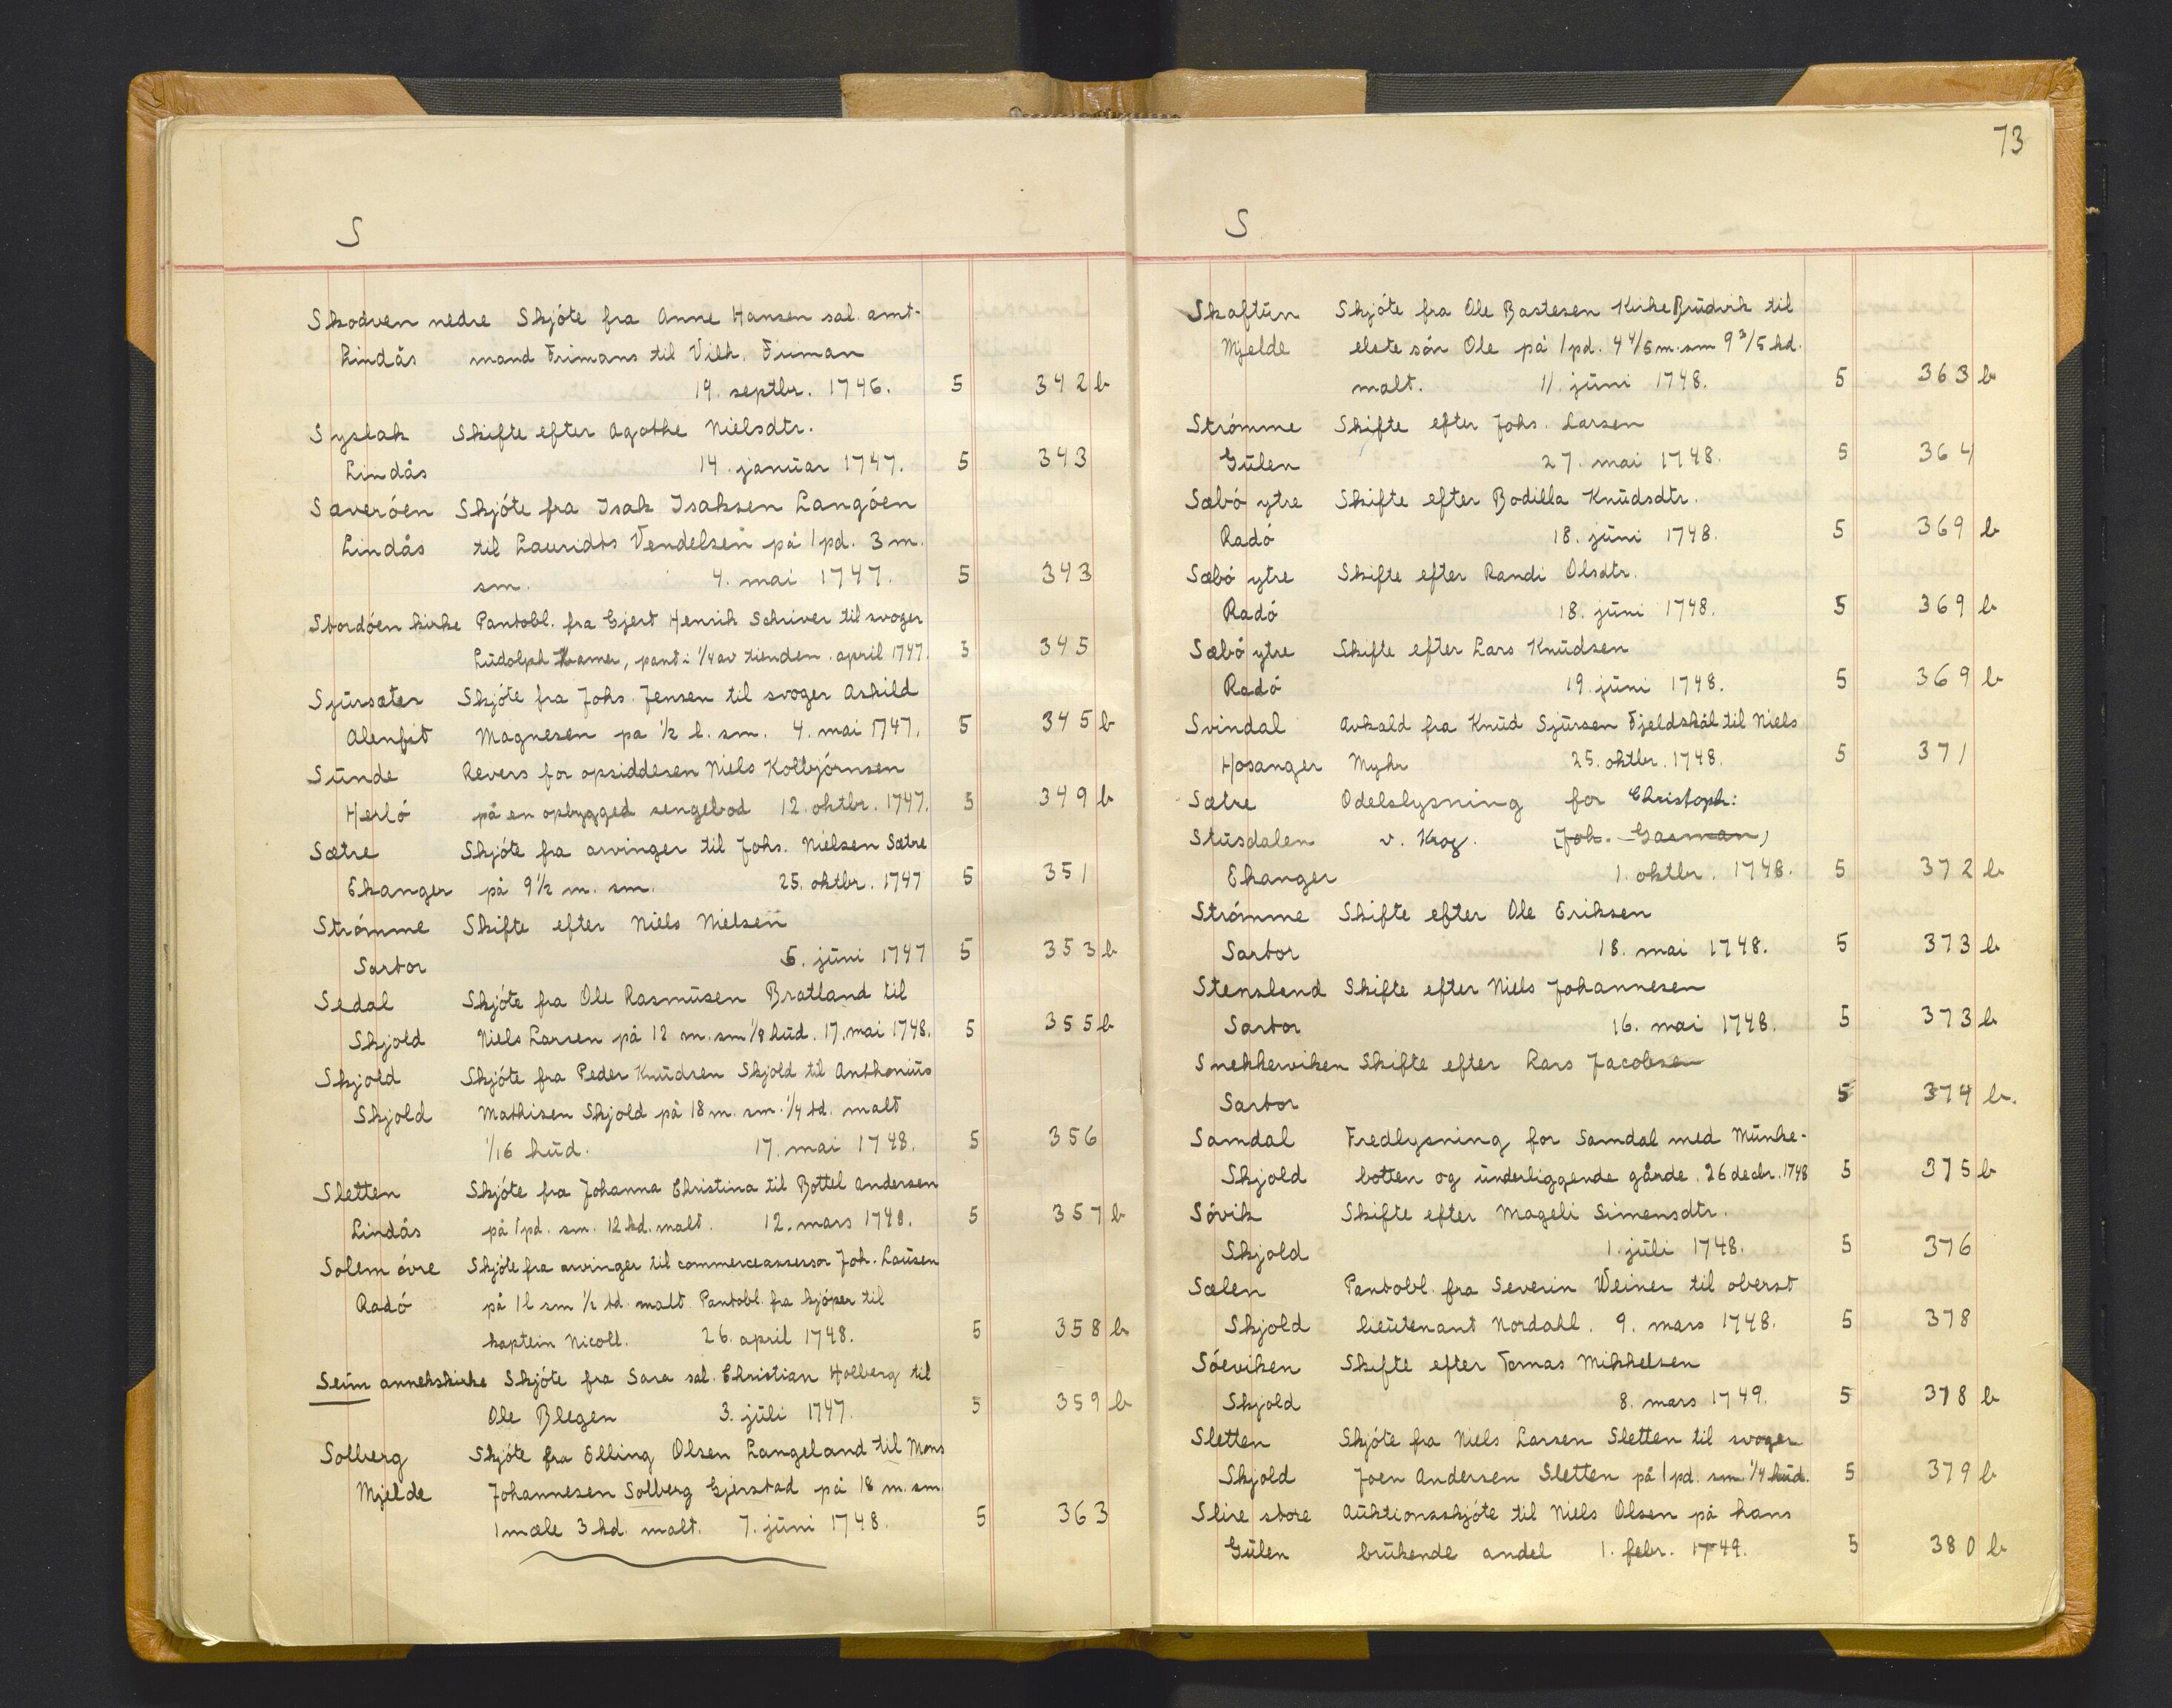 S
Skodven nedre Skjóte fra Anne Hansen sal. amt-
Lindås mand Frimans til Vilh. Friman
19. septbr. 1746. 5 342 b
Syslak Skifte efter Agathe Nielsdtr.
Lindås 14. januar 1747. 5 343
Saveróen Skjóte fra Isak Isaksen Langóen
Lindås til Lauridts Vendelsen på 1 pd. 3 m.
sm. 4. mai 1747. 5 343
Stordóen kirke Pantobl. fra Gjert Henrik Schriver til svoger
Lūdolph Kamer, pant i 1/4 av tienden. april 1747. 5 345
Sjūrsæter Skjóte fra Johs. Jensen til svoger Askild
Alenfit Magnesen på 1/2 l. sm. 4. mai 1747. 5 345 b
Sūnde Revers for opsiddesen Niels Kolbjórnsen
Herló på en opbygged sengebod 12. oktbr. 1747. 5 349 b
Sætre Skjóte fra arvinger til Johs. Nielsen Sætre
Ekanger på 9 1/2 m. sm. 25. oktbr. 1747 5 351
Strómme Skifte efter Niels Nielsen
Sartor 6. jūni 1747 5 353 b
Sedal Skjóte fra Ole Rasmūsen Bratland til
Skjold Niels Larsen på 12 m. sm 1/8 hūd. 17. mai 1748. 5 355 b
Skjold Skjóte fra Peder Knūdsen Skjold til Anthoniūs
Skjold Mathisen Skjold på 18 m. sm. 1/4 td. malt
1/16 hūd. 17. mai 1748. 5 356
Sletten Skjóte fra Johanna Christina til Bottel Andersen
Lindås på 1 pd. sm. 12 kd. malt. 12. mars 1748. 5 357 b
Solem óvre Skjóte fra arvinger til commerceassessor Joh. Laūsen
Radó på 1 l sm 1/2 td. malt Pantobl. fra kjóper til
kaptein Nicoll. 26. april 1748. 5 358 b
Seim annekskirke Skjóte fra Sara sal. Christian Holberg til
Ole Blegen 3. jūli 1747. 5 359 b
Solberg Skjóte fra Elling Olsen Langeland til Mons
Mjelde Johannesen Solberg Gjerstad på 18 m. sm.
1 mæle 3 kd. malt. 7. jūni 1748. 5 363
73
S
Skaftūn Skjóte fra Ole Bastesen Kirke Brūdvik til
Mjelde elste són Ole på 1 pd. 4 4/5 m. sm 9 3/5 kd.
malt. 11. jūni 1748. 5 363 b
Strómme Skifte efter Johs. Larsen
Gūlen 27. mai 1748. 5 364
Sæbó ytre Skifte efter Bodilla Knūdsdtr.
Radó 18. jūni 1748. 5 369 b
Sæbó ytre Skifte efter Randi Olsdtr.
Radó 18. jūni 1748. 5 369 b
Sæbó ytre Skifte efter Lars Knūdsen
Radó 19. jūni 1748. 5 369 b
Svindal Avkald fra Knūd Sjūrsen Fjeldskål til Niels
Hosanger Myhr 25. oktbr. 1748. 5 371
Sætre Odelslysning for Christoph:
Stūsdalen v. Krog. (Joh. Gasman)
Ekanger 1. oktbr. 1748. 5 372 b
Strómme Skifte efter Ole Eriksen
Sartor 18. mai 1748. 5 373 b
Stensland Skifte efter Niels Johannesen
Sartor 16. mai 1748. 5 373 b
Snekkerviken Skifte efter Lars Jacobsen
Sartor 5 374 b.
Samdal Fredlysning for Samdal med Mūnke-
Skjold botten og ūnderliggende gårde. 26 decbr. 1748 5 375 b
Sóvik Skifte efter Mageli Simensdtr.
Skjold 1. jūli 1748. 5 376
Sælen Pantobl. fra Severin Weiner til oberst
Skjold lieūtenant Nordahl. 9. mars 1748. 5 378
Sóeviken Skifte efter Tomas Mikkelsen
Skjold 8. mars 1749. 5 378 b
Sletten Skjóte fra Niels Larsen Sletten til svoger
Skjold Joen Andersen Sletten på 1 pd. sm 1/4 hūd. 5 379 b
Slire store Aūktionsskjóte til Niels Olsen på hans
Gūlen brūkende andel 1. febr. 1749. 5 380 b